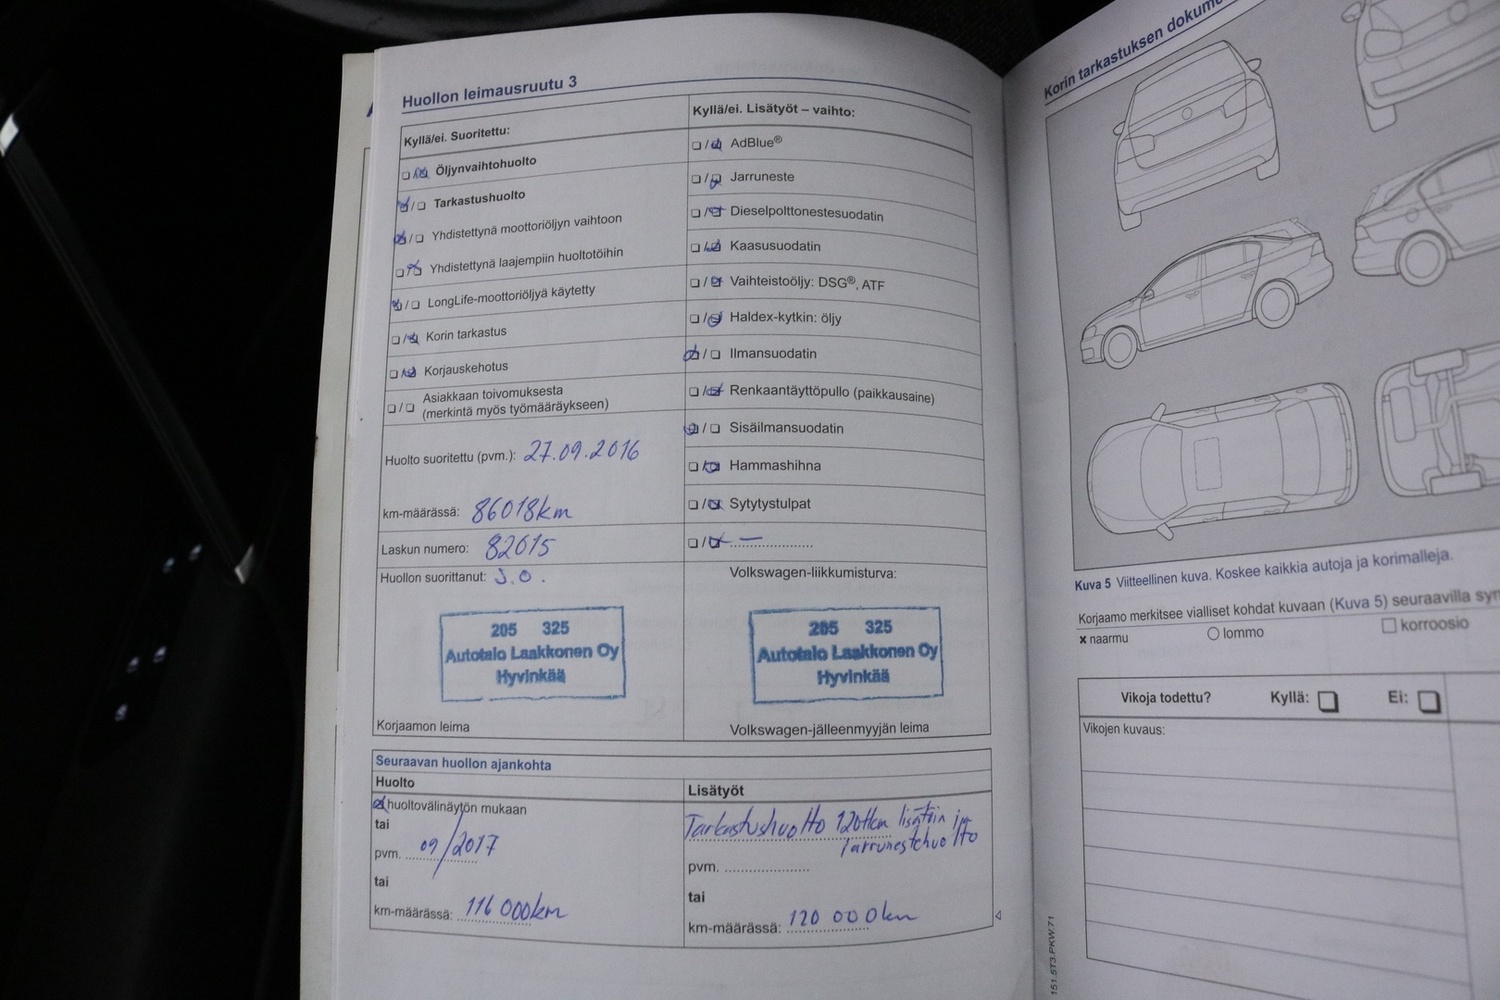 Huollon leimausruutu 3
Kyllä/ei. Suoritettu:
Öljynvaihtohuolto
Tarkastushuolto
Yhdistettynä moottoriöljyn vaihtoon
Yhdistettynä laajempiin huoltotöihin
LongLife-moottoriöljyä käytetty
Korin tarkastus
Korjauskehotus
Asiakkaan toivomuksesta
(merkintä myös työmääräykseen)
Huolto suoritettu (pvm.): 27.09.2016
km-määrässä: 86018km
Laskun numero: 82615
Huollon suorittanut: J.O.
205 325
Autotalo Laakkonen Oy
Hyvinkää
Korjaamon leima
Kyllä/ei. Lisätyöt – vaihto:
AdBlue®
Jarruneste
Dieselpolttonestesuodatin
Kaasusuodatin
Vaihteistoöljy: DSG®, ATF
Haldex-kytkin: öljy
Ilmansuodatin
Renkaantäyttöpullo (paikkausaine)
Sisäilmansuodatin
Hammashihna
Sytytystulpat
Volkswagen-liikkumisturva:
205 325
Autotalo Laakkonen Oy
Hyvinkää
Volkswagen-jälleenmyyjän leima
Seuraavan huollon ajankohta
Huolto
huoltovälinäytön mukaan
tai
pvm. 09/2017
tai
km-määrässä: 116 000km
Lisätyöt
Tarkastushuolto 120tkm lisätöin ja
Jarrunestehuolto
pvm.
tai
km-määrässä: 120 000km
Korin tarkastuksen
Kuva 5 Viitteellinen kuva. Koskee kaikkia autoja ja korimalleja.
Korjaamo merkitsee vialliset kohdat kuvaan (Kuva 5) seuraavilla
x naarmu
lommo
korroosio
Vikoja todettu? Kyllä: Ei:
Vikojen kuvaus:
151.5T3.PKW.71